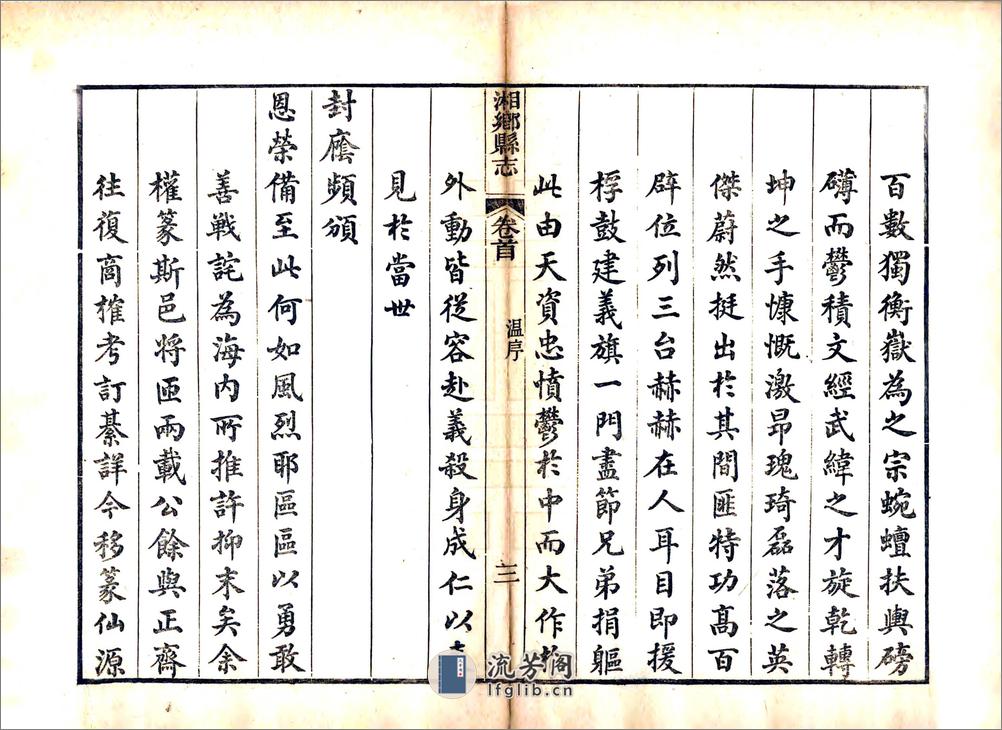 百數獨衡嶽為之宗蜿蟺扶輿磅
礴而鬱積文經武緯之才旋乾轉
坤之手慷慨激昂瑰琦磊落之英
傑蔚然挺出於其間匪特功高百
辟位列三台赫赫在人耳目即援
桴鼓建義旗一門盡節兄弟捐軀
此由天資忠憤鬱於中而大作於
湘鄉縣志
卷首
温序
三
外動皆從容赴義殺身成仁以
見於當世
封廕頻頒
恩榮備至此何如風烈耶區區以勇敢
善戰詫為海內所推許抑末矣余
權篆斯邑將匝兩載公餘與正齋
往復商搉考訂綦詳今移篆仙源
流芳阁
lfglib.cn